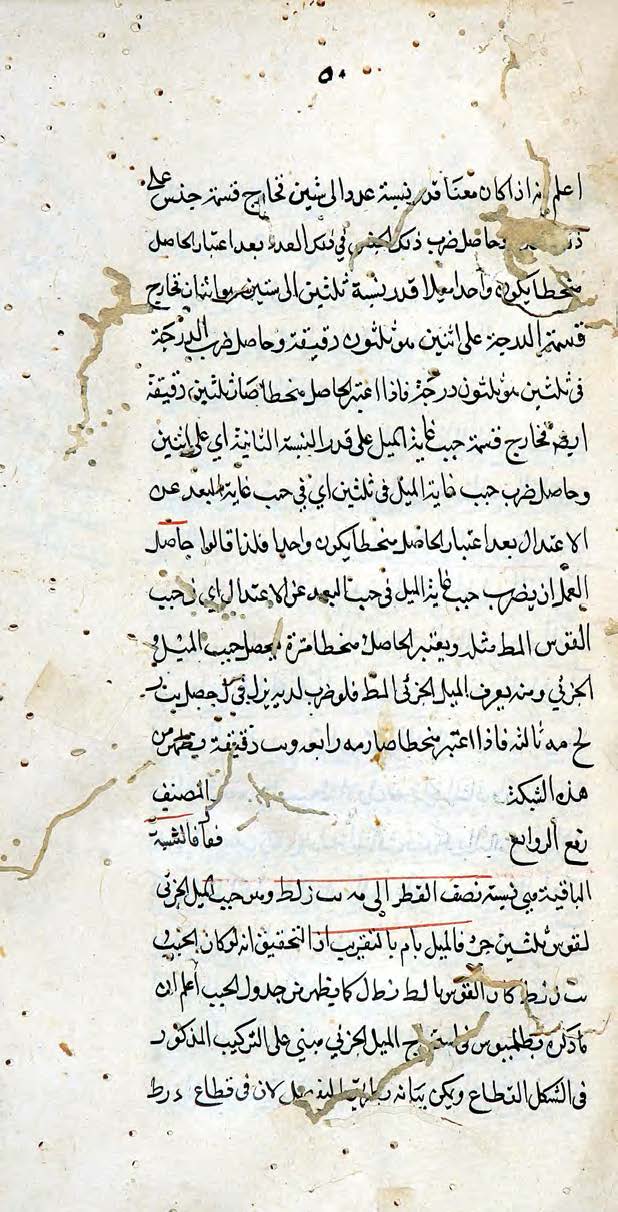 ٥٠
اعلم انه اذا كان معنا قدر نسبة عدد الى ستين فخارج قسمة جنس على
ذلك وحاصل ضرب ذلك الجنس في ذلك العدد بعد اعتبار الحاصل
منحطا يكون واحدا مثلا قدر نسبة ثلثين الى ستين هو اثنان فخارج
قسمة الدرجة على اثنين هو ثلثون دقيقة وحاصل ضرب الدرجة
في ثلثين هو ثلثون درجة فاذا اعتبر الحاصل منحطا صار ثلثين دقيقة
ايضا فخارج قسمة جيب غاية الميل على قدر النسبة الثانية اي على اثنين
وحاصل ضرب جيب غاية الميل في ثلثين اي في جيب غاية البعد عن
الاعتدال بعد اعتبار الحاصل منحطا يكون واحدا فلذا قالوا حاصل
العمل ان يضرب جيب غاية الميل في جيب البعد عن الاعتدال اي في جيب
القوس المط مثله ويعتبر الحاصل منحطا مرة يحصل جيب الميل
الجزئي ومنه يعرف الميل الجزئي المط فلو ضرب في ل حصل
لح مه ثالثة فاذا اعتبر منحطا صار مه رابعة دقيقة من
هذه الشبكة والمصنف
رفع الروابع
الباقية هي نسبة نصف القطر الى مه جيب الميل الجزئي
لقوس ثلثين جزء فالميل بالتقريب اذ التحقيق انه لو كان الجيب
كان القوس كما يظهر من جدول الجيب اعلم ان
ما ذكره بطلميوس في استخراج الميل الجزئي مبني على التركيب المذكور
في الشكل القطاع ويمكن بيانه لان في قطاع